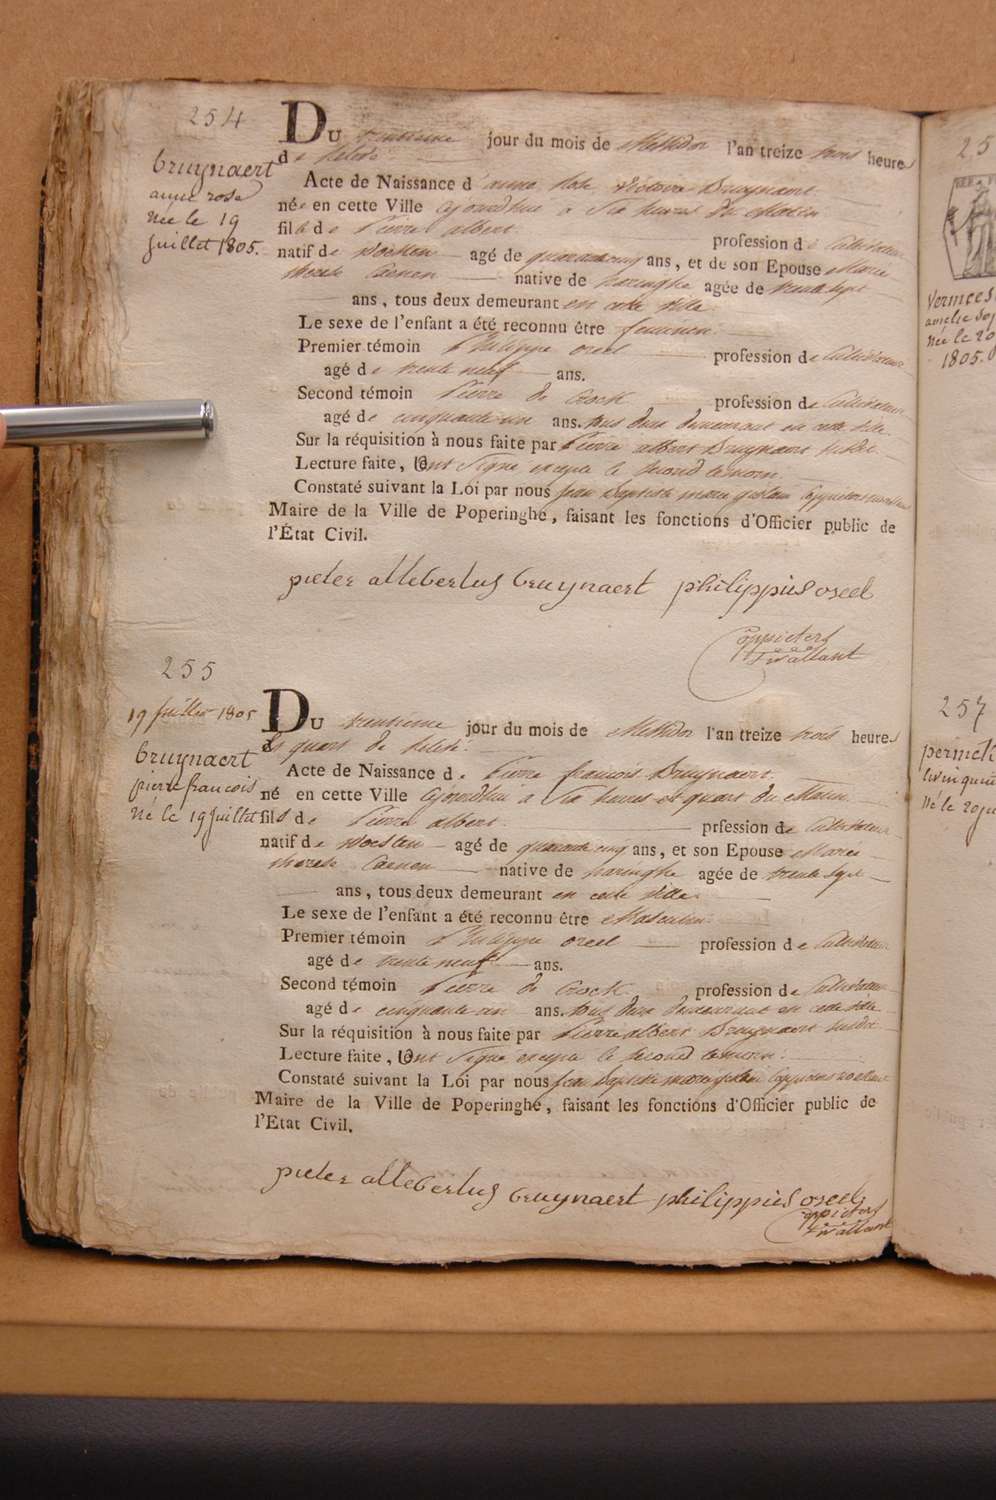 254
bruynaert
anne rose
née le 19
juillet 1805.
Du trentieme jour du mois de Messidor l'an treize trois heures
de Relevée
Acte de Naissance d'anne Rose Victoire Bruynaert
née en cette Ville ajourdhui a Six heures du Matin
fille de Pierre albert profession de Cultivateur
natif de Woesten agé de quarante cinq ans, et de son Epouse Marie
therese Caenen native de haringhe agée de trente Sept
ans, tous deux demeurant en cette ville
Le sexe de l'enfant a été reconnu être feminin.
Premier témoin Philippe oreel profession de Cultivateur
agé de trente neuf ans.
Second témoin Pierre de Crock profession de Cultivateur
agé de cinquante un ans. tous deux demeurant en cette ville
Sur la réquisition à nous faite par Pierre albert Bruynaert susdit
Lecture faite, Ont Signé excepté le Second temoin
Constaté suivant la Loi par nous jean Baptiste marie
Maire de la Ville de Poperinghe, faisant les fonctions d'Officier public de
l'État Civil.
pieter allebertus bruynaert philippus oreel
255
19 Juillet 1805
bruynaert
pierre francois
né le 19 Juillet
Du trentieme jour du mois de Messidor l'an treize trois heures
et quart de Relevé
Acte de Naissance de Pierre françois Bruynaert
né en cette Ville ajourdhui a Six heures et quart du Matin
fils de Pierre albert prfession de Cultivateur
natif de Woesten agé de quarante cinq ans, et son Epouse Marie
therese Caenen native de haringhe agée de trente Sept
ans, tous deux demeurant en cette ville
Le sexe de l'enfant a été reconnu être Masculin.
Premier témoin Philippe oreel profession de Cultivateur
agé de trente neuf ans.
Second témoin Pierre de Crock profession de Cultivateur
agé de cinquante un ans. tous deux demeurant en cette ville
Sur la réquisition à nous faite par Pierre albert Bruynaert susdit
Lecture faite, Ont Signé excepté le Second temoin.
Constaté suivant la Loi par nous jean Baptiste marie
Maire de la Ville de Poperinghe, faisant les fonctions d'Officier public de
l'Etat Civil.
pieter allebertus bruynaert philippus oreel
25
Vermees
amelie
née le 20
1805.
257
permek
né le 20